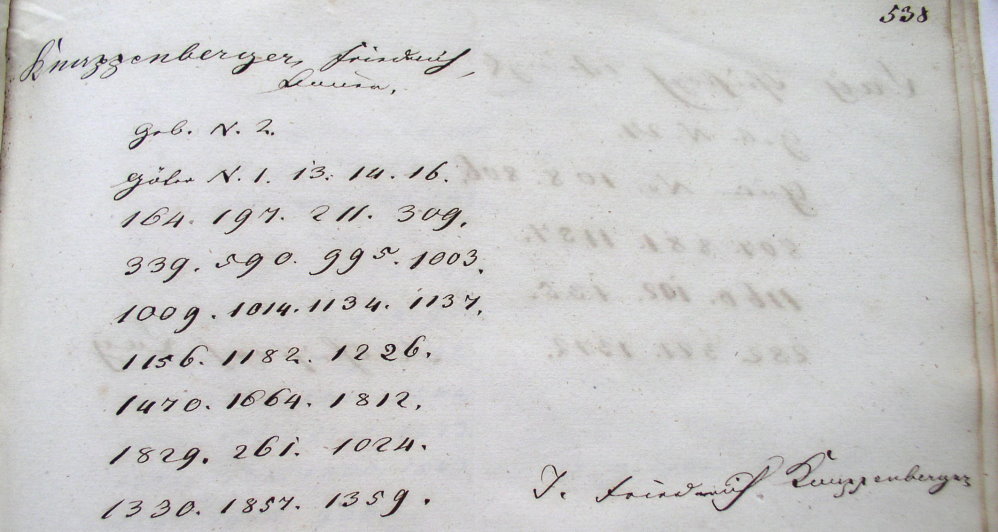 538
Knappenberger, Friedrich,
Bauer.
Geb. N. 2.
Güter N. 1. 13. 14. 16.
164. 197. 211. 309.
339. 590. 995. 1003.
1009. 1014. 1134. 1137.
1156. 1182. 1226.
1470. 1664. 1812.
1829. 261. 1024.
1330. 1857. 1359.
J. Friedrich Knappenberger